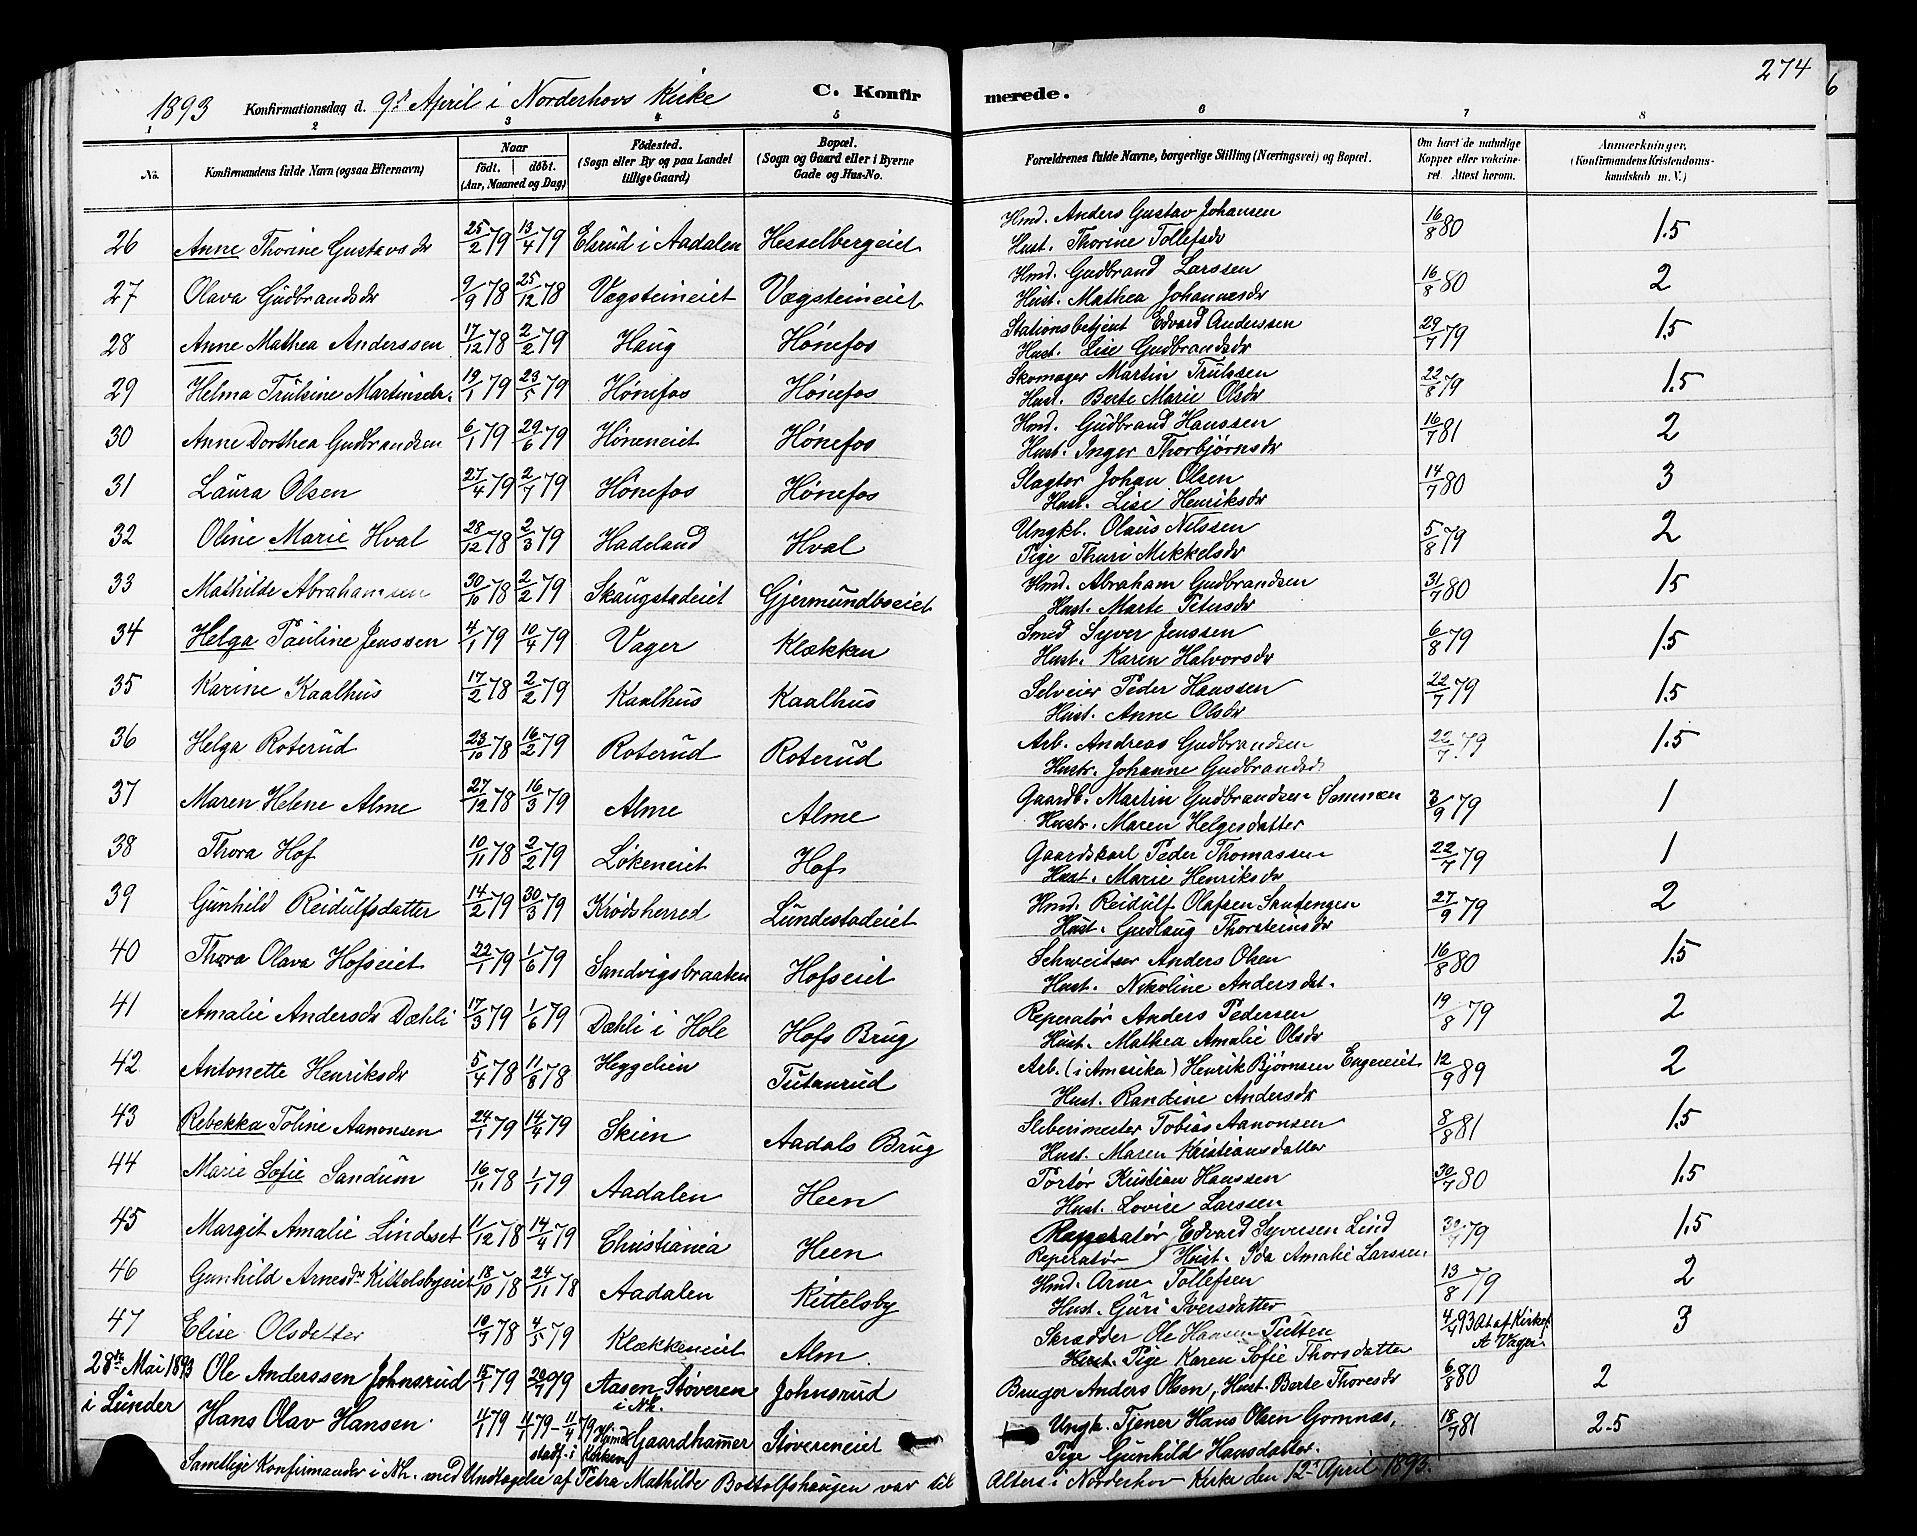 274
1893 Konfirmationsdag d. 9de April i Norderhovs Kirke C. Konfirmerede.
1 2 3 4 5 6 7 8
No. Konfirmandens fulde Navn (ogsaa Efternavn) Naar født. døbt. (Aar, Maaned og Dag) Fødested. (Sogn eller By og paa Landet tillige Gaard) Bopæl. (Sogn og Gaard eller i Byerne Gade og Hus-No. Forældrenes fulde Navne, borgerlige Stilling (Næringsvei) og Bopæl. Om havt de naturlige Kopper eller vakcineret. Attest herom. Anmærkninger. (Konfirmandens Kristendomskundskab m. V.)
26 Anne Thorine Gustavsdr 25/2 79 13/4 79 Elsrud i Aadalen Hesselbergeiet Hmd. Anders Gustav Johansen 16/8 80 1.5
Hust. Thorine Tollefsdr
27 Olava Gudbrandsdr 9/9 78 25/12 78 Vægsteineiet Vægsteineiet Hmd. Gudbrand Larssen 16/8 80 2
Hust. Mathea Johannesdr
28 Anne Mathea Anderssen 17/12 78 2/2 79 Haug Hønefos Stationsbetjent Edvard Anderssen 29/7 79 1.5
Hust. Lise Gudbrandsdr
29 Helma Trulsine Martinsdr. 19/1 79 23/5 79 Hønefos Hønefos Skomager Martin Trulssen 22/8 79 1.5
Hust. Berte Marie Olsdr
30 Anne Dorthea Gudbrandsen 6/1 79 29/6 79 Høneneiet Hønefos Hmd. Gudbrand Hanssen 16/7 81 2
Hust. Inger Thorbjørnsdr
31 Laura Olsen 27/4 79 2/7 79 Hønefos Hønefos Slagter Johan Olsen 14/7 80 3
Hust. Lise Henriksdr
32 Oline Marie Hval 28/12 78 2/3 79 Hadeland Hval Ungkl. Olaus Nilssen 5/8 79 2
Pige Thuri Mikkelsdr
33 Mathilde Abrahamsen 30/10 78 2/2 79 Skaugstadeiet Gjermundboeiet Hmd. Abraham Gudbrandsen 31/7 80 15
Hust. Marte Petersdr
34 Helga Pauline Jenssen 4/1 79 10/4 79 Vager Klækken Smed Syver Jenssen 6/8 79 1.5
Hust. Karen Halvorsdr
35 Karine Kaalhus 17/2 78 2/2 79 Kaalhus Kaalhus Selveier Peder Hanssen 22/7 79 1.5
Hust. Anne Olsdr
36 Helga Roterud 23/10 78 16/2 79 Roterud Roterud Arb. Andreas Gudbrandsen 22/7 79 1.5
Hustr. Johanne Gudbrandsd.
37 Maren Helene Alme 27/12 78 16/3 79 Alme Alme Gaardb. Martin Gudbrandsen 3/9 79 1
Hustr. Maren Helgesdatter
38 Thora Hof 10/11 78 2/2 79 Løkeneiet Hof Gaardskarl Peder Thomassen 22/7 79 1
Hust. Marie Henriksdr
39 Gunhild Reidulfsdatter 14/2 79 30/3 79 Krødsherred Lundestadeiet Hmd. Reidulf Olafsen Sandengen 27/9 79 2
Hust. Gudlaug Thorsteinsdr
40 Thora Olava Hofseiet 22/1 79 1/6 79 Sandvigsbraaten Hofseiet Schweitser Anders Olsen 16/8 80 1.5
Hust. Nikoline Andersdet.
41 Amalie Andersdr Dæhli 17/3 79 1/6 79 Dæhli i Hole Hofs Brug Reperatør Anders Pedersen 19/8 79 2
Hust. Mathea Amalie Olsdr
42 Antonette Henriksdr 5/4 78 11/8 78 Heggelien Tutanrud Arb. (i Amerika) Henrik Bjørnsen Engeneiet 12/9 89 2
Hust. Randine Andersdr
43 Rebekka Toline Aanonsen 24/1 79 14/4 79 Skien Aadals Brug Sliberimester Tobias Aanonsen 8/8 81 1.5
Hust. Maren Kristiansdatter
44 Marie Sofie Sandum 16/11 78 1/1 79 Aadalen Heen Portør Kristian Hanssen 30/7 80 1.5
Hust. Lovise Larssen
45 Margit Amalie Lindset 11/12 78 14/4 79 Christiania Heen Edvard Syversen Lind 79 1.5
Reperatør Hust. Ida Amalie Larssen
46 Gunhild Arnesdr Kittelsbyeiet 18/10 78 24/11 78 Aadalen Kittelsby Hmd. Arne Tollefsen 13/8 79 2
Hust. Guri Iversdatter
47 Elise Olsdatter 10/7 78 4/5 79 Klækkeneiet Alm. Skrædder Ole Hansen Tulten 4/4 93 At af Kirkes. A Vager 3
Pige Karen Sofie Thorsdatter
28de Mai 1893 Ole Anderssen Johnsrud 15/1 79 20/7 79 Aasen Støveren i Nh. Johnsrud Bruger Anders Olsen, Hust. Berte Thoresdr 6/8 80 2
i Lunder Hans Olav Hansen 4/1 79 Hjemdt Gaardhammer Støvereneiet Ungk. Tjener Hans Olsen Gomnæs, 18/7 81 2-5
stadf. i Kirken Pige Gunhild Hansdatter.
Samtlige Konfirmander i Nh. med Undtagelse af Petra Mathilde Bottolfshaugen var til Alters i Norderhov Kirke den 12te April 1893.